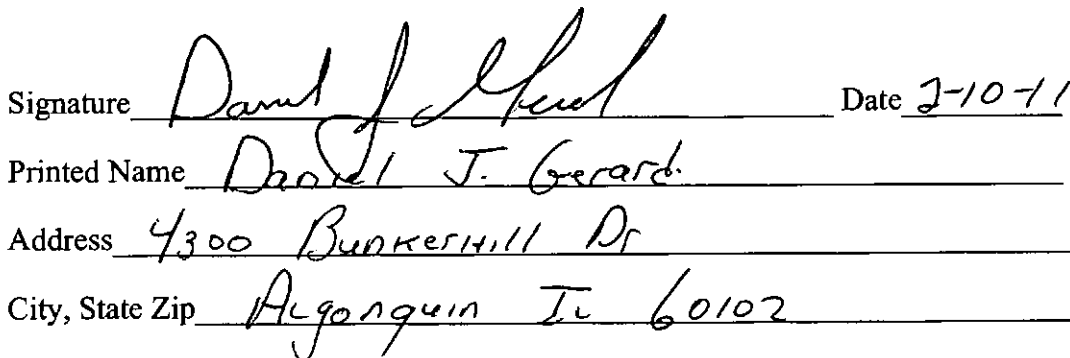 Signature Daniel J Gerard Date 2-10-11
Printed Name Daniel J. Gerard
Address 4300 Bunkerhill Dr
City, State Zip Algonquin IL 60102